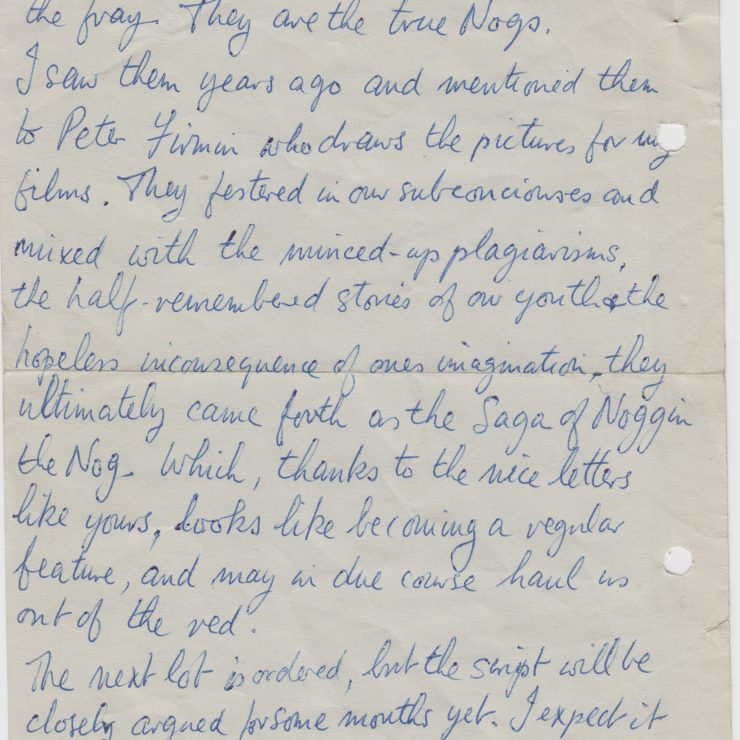 the fray. They are the true Nogs.
I saw them years ago and mentioned them
to Peter Firmin who draws the pictures for my
films. They festered in our subconciouses and
mixed with the minced-up plagiarisms,
the half-remembered stories of our youth & the
hopeless inconsequence of ones imagination, they
ultimately came forth as the Saga of Noggin
the Nog. Which, thanks to the nice letters
like yours, looks like becoming a regular
feature, and may in due course haul us
out of the red.
The next lot is ordered, but the script will be
closely argued for some months yet. I expect it